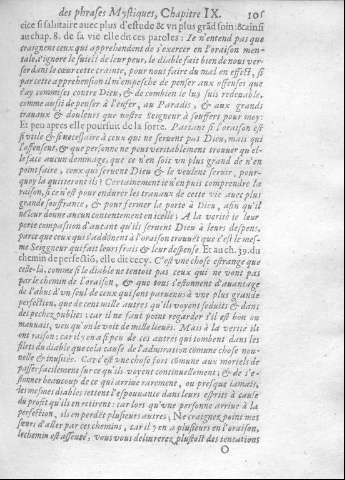 des phrases Mystiques, Chapitre IX. 105
cice si salutaire auec plus d'estude & vn plus grãd soin: & ainsi
au chap. 8. de sa vie elle dit ces paroles: Ie n'entend pas que
craignent ceux qui apprehendent de s'exercer en l'oraison men-
tale, i'ignore le suiet de leur peur, le diable fait bien de nous ver-
ser dans le cœur cette crainte, pour nous faire du mal en effect, si
par cette apprehension il m'empesche de penser aux offenses que
i'ay commises contre Dieu, & de combien ie luy suis redeuable,
comme aussi de penser à l'enfer, au Paradis, & aux grands
trauaux & douleurs que nostre Seigneur à souffert pour moy:
Et peu apres elle poursuit de la sorte. Passant si l'oraison est
si vtile & si necessaire à ceux qui ne seruent pas Dieu, mais qui
l'offensent, & que personne ne peut veritablement trouuer qu'el-
le face aucun dommage, que ce n'en soit vn plus grand de n'en
point faire, ceux qui seruent Dieu & le veulent seruir, pour-
quoy la quitteront ils? Certainement ie n'en puis comprendre la
raison, si ce n'est pour endurer les trauaux de cette vie auec plus
grande souffrance, & pour fermer la porte à Dieu, afin qu'il
ne leur donne aucun contentement en icelle; A la verité ie leur
porte compassion d'autant qu'ils seruent Dieu à leurs despens,
parce que ceux qui s'addonẽt à l'oraison trouuẽt que c'est le mes-
me Seigneur qui fait leurs frais & leur despense. Et au ch. 39. du
chemin de perfectiõ, elle dit cecy. C'est vne chose estrange que
celle-là, comme si le diable ne tentoit pas ceux qui ne vont pas
par le chemin de l'oraison, & que tous s'estonnent d'auantage
de l'abus d'vn seul de ceux qui sont paruenus à vne plus grande
perfection, que de cent mille autres qu'ils voyent seduits & dans
des pechez publics; car il ne faut point regarder s'il est bon ou
mauuais, veu qu'on le voit de mille lieuës. Mais à la verité ils
ont raison: car il y en a si peu de ces autres qui tombent dans les
filets du diable que cela cause de l'admiration comme chose nou-
uelle & inusitée. Car c'est vne chose fort comune aux mortels de
passer facilement sur ce qu'ils voyent continuellement; & de s'e-
stonner beaucoup de ce qui arriue rarement, ou presque iamais,
les mesmes diables iettent l'espouuante dans leurs esprits à cause
du profit qu'ils en retirent: car lors qu'vne personne arriue à la
perfection, ils en perdẽt plusieurs autres; Ne craignez point mes
sœurs d'aller par ces chemins, car il y en a plusieurs en l'oraison,
le chemin est asseuré, vous vous deliurerez plustost des tentations
O